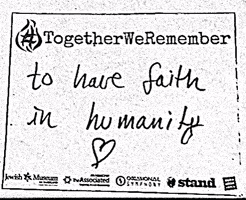 #TogetherWeRemember
to have faith
in humanity
Jewish Museum The Associated OCCASIONAL SYMPHONY stand